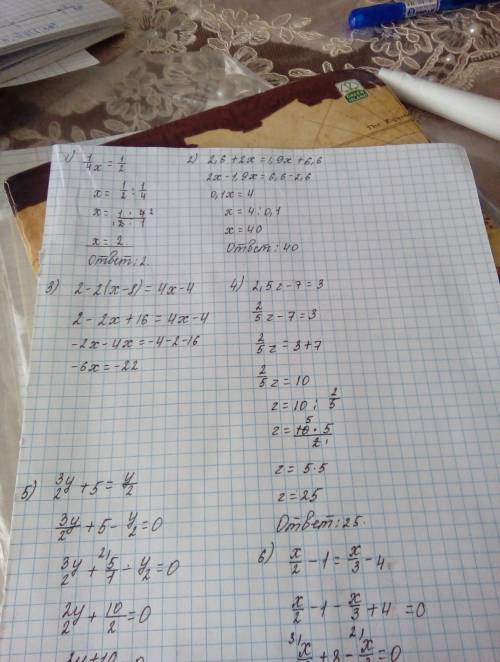 1) 1/4 x = 1/2
x = 1/2 : 1/4
x = 1 · 4 2 / 1 2 · 1
x = 2
Ответ: 2
2) 2,6 + 2x = 1,9x + 6,6
2x - 1,9x = 6,6 - 2,6
0,1x = 4
x = 4 : 0,1
x = 40
Ответ: 40
3) 2 - 2(x - 8) = 4x - 4
2 - 2x + 16 = 4x - 4
-2x - 4x = -4 - 2 - 16
-6x = -22
4) 2,5z - 7 = 3
2/5 z - 7 = 3
2/5 z = 3 + 7
2/5 z = 10
z = 10 : 2/5
z = 5 10 · 5 / 2 1
z = 5 · 5
z = 25
Ответ: 25.
5) 3y/2 + 5 = y/2
3y/2 + 5 - y/2 = 0
3y/2 + 2) 5/1 - y/2 = 0
2y/2 + 10/2 = 0
2y + 10
6) x/2 - 1 = x/3 - 4
x/2 - 1 - x/3 + 4 = 0
3) x + 3 - 2) x = 0